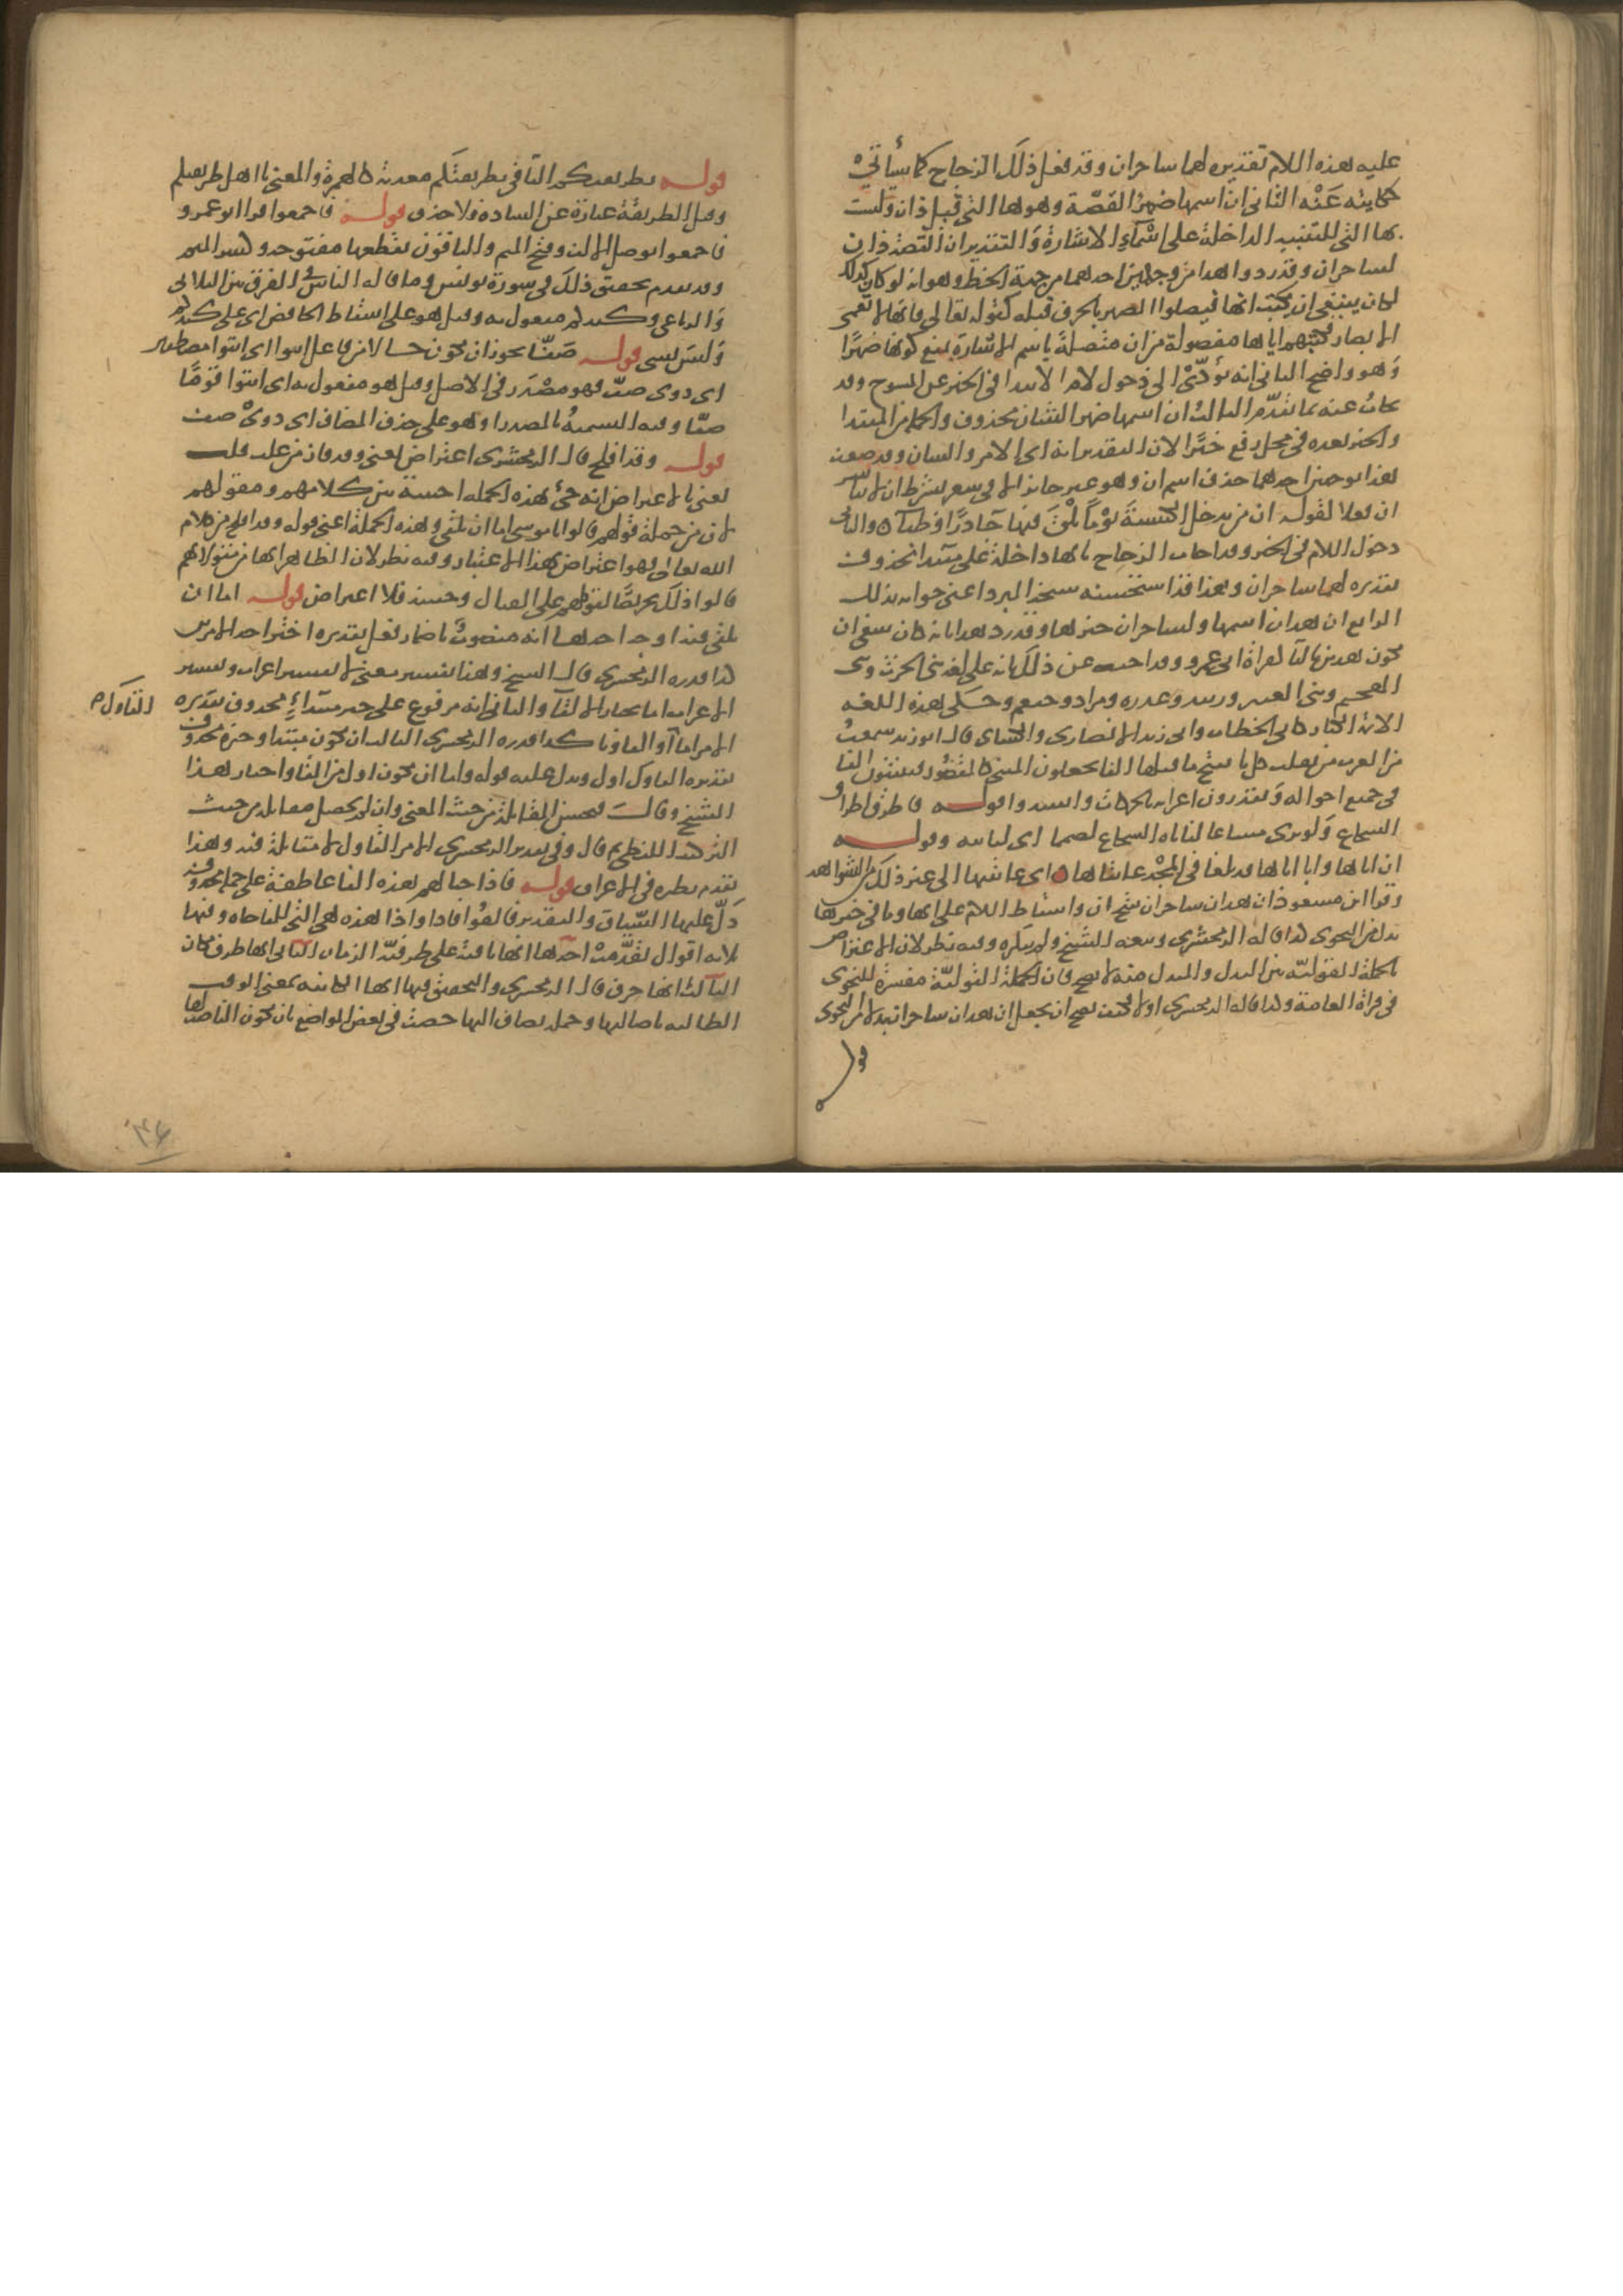 عليه هذه اللام تقديره لهما ساحران وقد فعل ذلك الزجاج كما سأتي
حكايته عنه الثاني ان اسمها ضمير القصة وهو ها التي قبل ذان وليست
بها التي للتنبيه الداخلة على اسماء الاشارة والتقدير ان القصة ذان
لساحران وقد ردوا هذا من وجهين احدهما من جهة الخط وهو انه لو كان كذلك
لكان ينبغي ان يكتب انها فيصلوا الضمير بالحرف قبله كقوله تعالى فانها لا تعمى
الابصار فكتبهم اياها مفصولة من ان متصلة باسم الاشارة يمنع كونها ضميرا
وهو واضح الثاني انه يؤدي الى دخول لام الابتدا في الخبر غير المنسوخ وقد
يجاب عنه بما تقدم الثالث ان اسمها ضمير الشان محذوف والجملة من المبتدا
والخبر بعده في محل رفع خبرا لان التقدير انه اي الامر والشان وقد ضعف
هذا بوجهين احدهما حذف اسم ان وهو غير جائز الا في شعر بشرط ان لا تباشر
ان فعلا لقوله ان من يدخل الكنيسة يوما يلق فيها جآذرا وظبآ والثاني
دخول اللام في الخبر وقد اجاب الزجاج بانها داخلة على مبتدا محذوف
تقديره لهما ساحران وهذا قد استحسنه شيخه المبرد اعني جوابه بذلك
الرابع ان هذان اسمها ولساحران خبرها وقد رد هذا بانه كان ينبغي ان
يكون هذين باليا كقراة ابي عمرو وقد اجيب عن ذلك بانه على لغة بني الحرث وبني
الهجيم وبني العنبر وزبيد وعذره ومراد وخثعم وحكى هذه اللغه
الائمة الكبار كابي الخطاب وابي زيد الانصاري والكسائي قال ابو زيد سمعت
من العرب من يقلب كل يا ينفتح ما قبلها الفا يجعلون المثنى كالمقصور فيثبتون الفا
في جميع احواله ويقدرون اعرابه بالحركات وانشدوا قوله فاطرق اطراق
الشجاع ولو يرى مساغا لناباه الشجاع لصمما اي لنابيه وقوله
ان اباها وابا اباها قد بلغا في المجد غايتاها اي غايتيها الى غير ذلك من الشواهد
وقرا ابن مسعود ان هذان ساحران بفتح ان واسقاط اللام على انها وما في خبرها
بدل من النجوى كذا قاله الزمخشري وتبعه الشيخ ولم ينكره وفيه نظر لان الاعتراض
بالجملة القولية بين البدل والمبدل منه لا يصح فان الجملة القولية مفسرة للنجوى
في قراة العامة وكذا قاله الزمخشري اولا فكيف يصح ان يجعل ان هذان ساحران بدلا من النجوى
قوله
قوله بطريقتكم البا في بطريقتكم معدية كالهمزة والمعنى بااهل طريقتكم
وقيل الطريقة عبارة عن السادة فلا حذف قوله فاجمعوا قرا ابو عمرو
فاجمعوا بوصل الالف وفتح الميم والباقون بقطعها مفتوحة وكسر الميم
وقد تقدم تحقيق ذلك في سورة يونس وما قاله الناس في الفرق بين الثلاثي
والرباعي وكيدكم مفعول به وقيل هو على اسقاط الخافض اي على كيدكم
وليس بشي قوله صفا يجوز ان يكون حالا من فاعل ائتوا اي ائتوا مصطفين
اي ذوي صف فهو مصدر في الاصل وقيل هو مفعول به اي ائتوا قوما
صفا وفيه التسمية بالمصدر او هو على حذف المضاف اي ذوي صف
قوله وقد افلح قال الزمخشري اعتراض يعني وقد فاز من غلب قلت
يعني بالاعتراض انه جئ بهذه الجمله اجنبية بين كلامهم ومقولهم
لان من جملة قولهم قالوا ياموسى اما ان تلقي وهذه الجملة اعني قوله وقد افلح من كلام
الله تعالى فهو اعتراض بهذا الاعتبار وفيه نظر لان الظاهر انها من مقولاتهم
قالوا ذلك تحريضا لقومهم على القتال وحينئذ فلا اعتراض قوله اما ان
تلقي فيه اوجه احدها انه منصوب باضمار فعل تقديره اختر احد الامرين
كذا قدره الزمخشري قال الشيخ وهذا تفسير معنى لا تفسير اعراب وتفسير
الاعراب اما تختار الالقا والثاني انه مرفوع على خبر مبتداء محذوف تقديره
الامر اما القاوك او القاونا كذا قدره الزمخشري الثالث ان يكون مبتدا وخبره محذوف
تقديره القاوك اول ويدل عليه قوله واما ان نكون اول من القا واختار هذا
الشيخ وقال فتحسن المقابلة من حيث المعنى وان لم تحصل مقابلة من حيث
التركيب اللفظي قال وفي تقدير الزمخشري الامر القاول لا مقابلة فيه وهذا
تقدم نظيره في الاعراف قوله فاذا حبالهم هذه الفا عاطفة على جملة محذوفة
دل عليها السياق والتقدير فالقوا فاذا واذا هذه هي التي للمفاجاه وفيها
ثلاثة اقوال تقدمت احدها انها باقية على ظرفية الزمان الثاني انها ظرف مكان
الثالث انها حرف قال الزمخشري والتحقيق فيها انها الكائنة بمعنى الوقت
الطالبة ناصبا لها وجملة تضاف اليها خصت في بعض المواضع بان يكون الناصب لها
القاوك